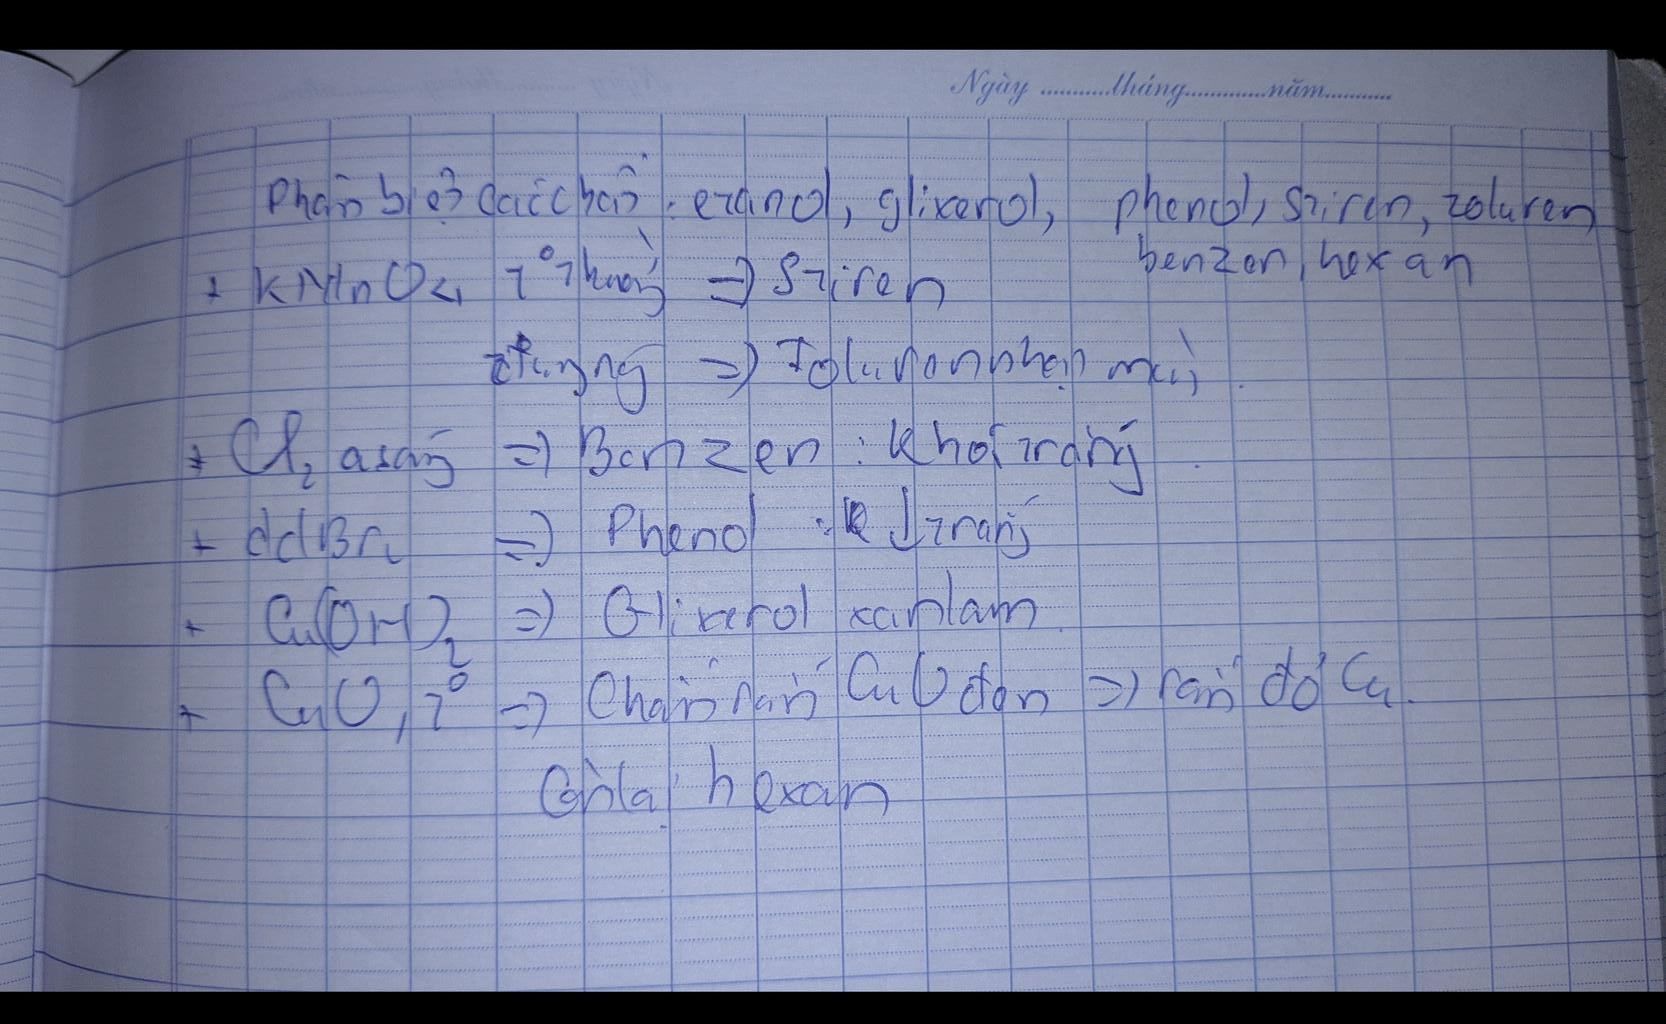 Ngày ..........tháng..............năm...........
Phân biệt các chất : etanol, glixerol, phenol, stiren, toluren
benzen, hexan
+ KMnO4 t° thường => Stiren
t°nóng => Toluren nhạt màu.
+ Cl2 asáng => Benzen : khói trắng.
+ ddBr2 => Phenol : ↓trắng
+ Cu(OH)2 => Glixerol xanh lam.
+ CuO, t° => Chất rắn CuO đen => rắn đỏ Cu.
Còn lại hexan